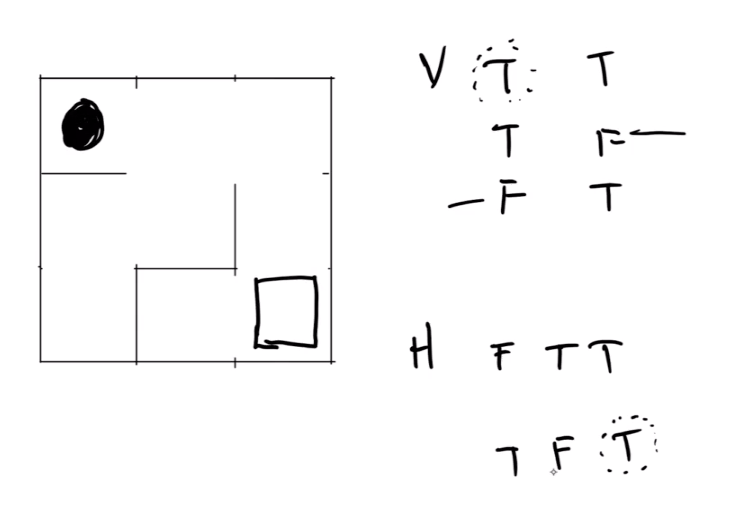 V T T
T F
F T
H F T T
T F T